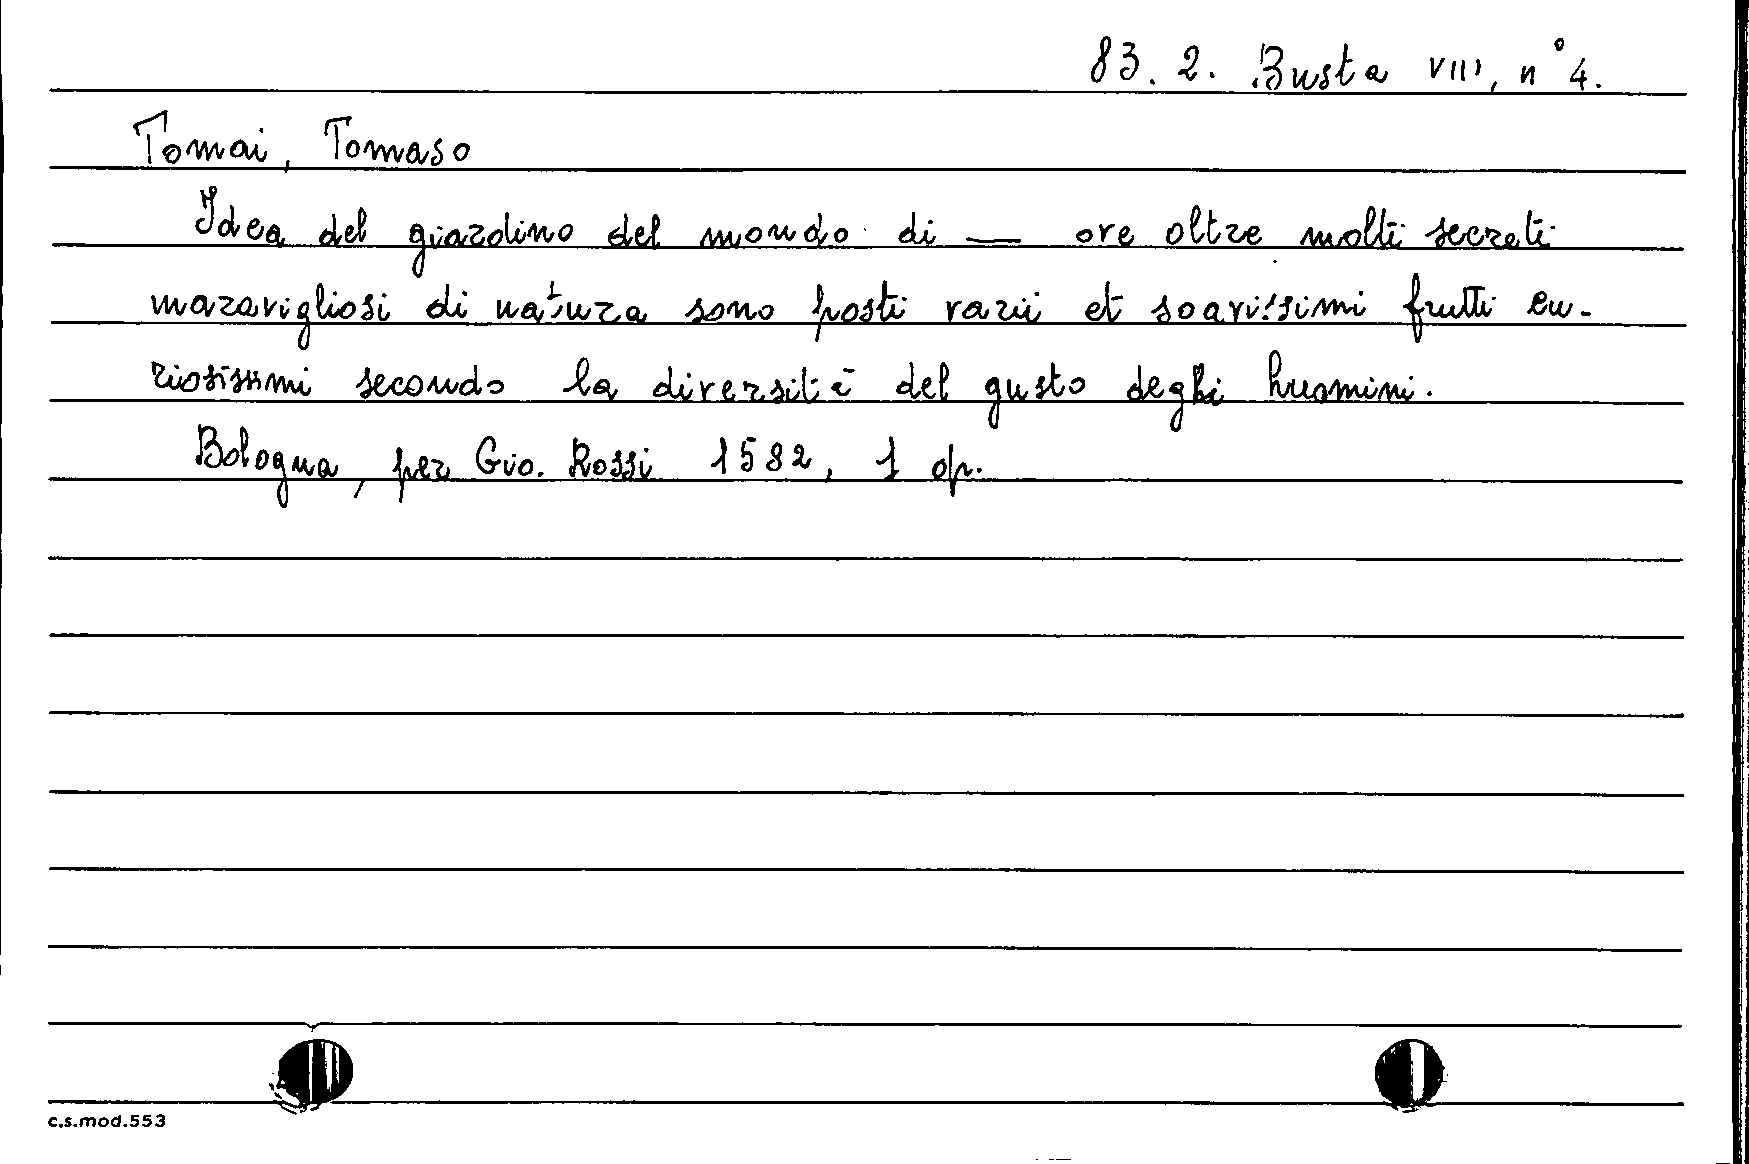 83. 2. Busta VIII, n° 4.
Tomai, Tomaso
Idea del giardino del mondo di — ove oltre molti secreti
maravigliosi di natura sono posti varii et soavissimi frutti cu-
riosissimi secondo la diversità del gusto degli huomini.
Bologna, per Gio. Rossi 1582, 1 op.
c.s.mod.553